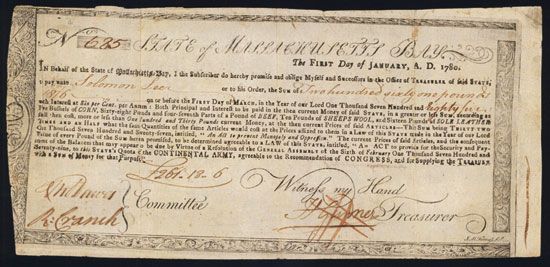 No 685 STATE of MASSACHUSETTS BAY.
The FIRST Day of JANUARY, A. D. 1780.
In Behalf of the State of Massachusetts-Bay, I the Subscriber do hereby promise and oblige Myself and Successors in the Office of TREASURER of said STATE,
to pay unto Solomon Lee or to his Order, the SUM of Two hundred sixty one pounds
18/6 on or before the FIRST Day of MARCH, in the Year of our Lord One Thousand Seven Hundred and Eighty five
with Interest at Six per Cent. per ANNUM: Both Principal and Interest to be paid in the then current Money of said STATE, in a greater or less SUM, according as
Five Bushels of CORN, Sixty-eight Pounds and four-seventh Parts of a Pound of BEEF, Ten Pounds of SHEEPS WOOL, and Sixteen Pounds of SOLE LEATHER
shall then cost, more or less than One Hundred and Thirty Pounds current Money, at the then current Prices of said ARTICLES—This SUM being THIRTY-TWO
TIMES AND AN HALF what the same Quantities of the same Articles would cost at the Prices affixed to them in a LAW of this STATE made in the Year of our Lord
One Thousand Seven Hundred and Seventy-seven, intitled, "An ACT to prevent Monopoly and Oppression." The current Prices of said Articles, and the consequent
Value of every Pound of the Sum herein promised, to be determined agreeable to a LAW of this STATE, intitled, "An ACT to provide for the Security and Pay-
ment of the Balances that may appear to be due by Virtue of a Resolution of the GENERAL ASSEMBLY of the Sixth of February One Thousand Seven Hundred and
Seventy-nine, to this STATE'S Quota of the CONTINENTAL ARMY, agreeable to the Recommendation of CONGRESS, and for Supplying the TREASURY
with a SUM of Money for that Purpose."
£261.18.6
Witness my Hand
R. Cranch
Committee
Treasurer